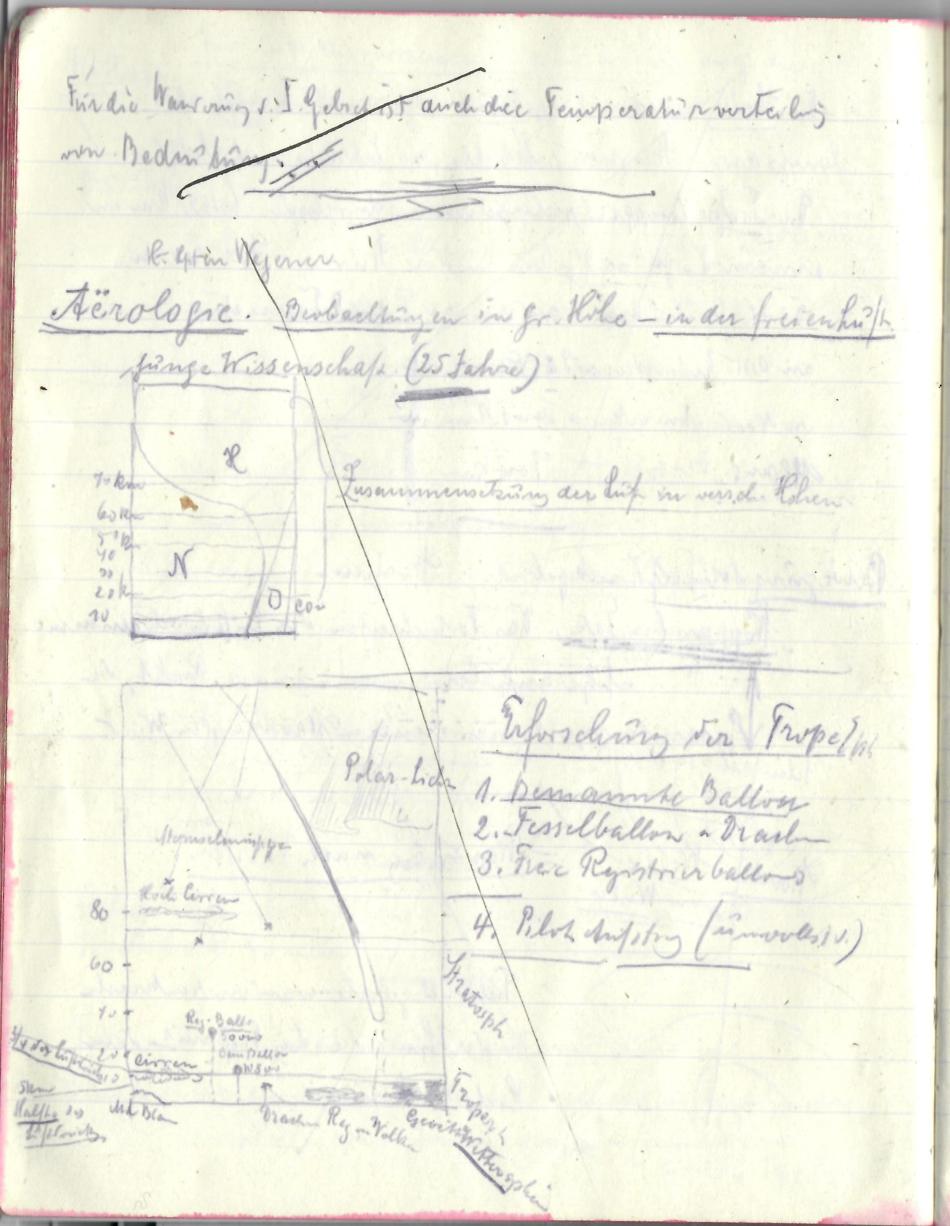 Für die v. I. Gebst ist auch die Temperaturverteilung
von Bedeutung.
Wegener
Aërologie. Beobachtungen in gr. Höhe – in der freien Luft.
junge Wissenschaft (25 Jahre)
H
70 km
Zusammensetzung der Luft in versch. Höhen
60 km
50 k
40
N
30
20 k
O CO₂
10
Erforschung der Troposph
Polar-Licht
1. Bemannte Ballon
2. Fesselballon u Drachen
3. Freie Registrierballons
Sternschnuppe
Hoch Cirren
80
4. Pilot Aufstieg (unvollst.)
60
Stratosph
Reg.-Ballo
20
Cirren
3/4 des Luftdrucks
Troposph
5 km
Hälfte des
Luftdrucks
Mt Blan
Drachen Reg Wolken
Gewitter